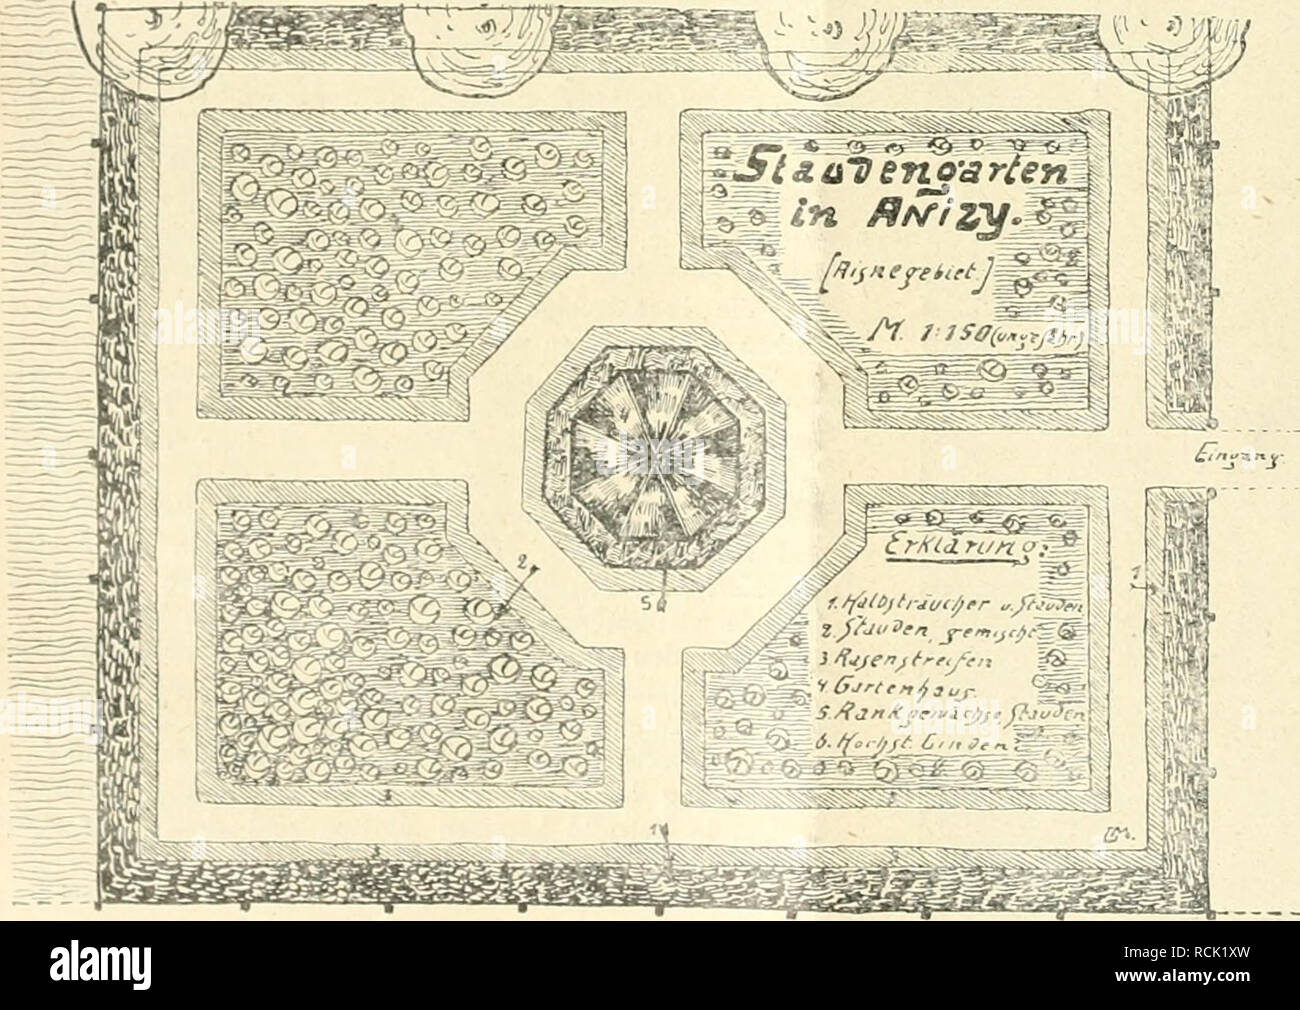 Staudengarten
in Añizy.
[Aisnegebiet.]
M. 1:150 (ungefähr)
Eingang.
Erklärung:
1. Halbsträucher u. Stauden
2. Stauden, gemischt
3. Rasenstreifen
4. Gartenhaus.
5. Rankgewächse, Stauden
6. Hochst. Linden.
1
2
5
1
3
3
3
3
alamy
Image ID: RCK1XW
www.alamy.com